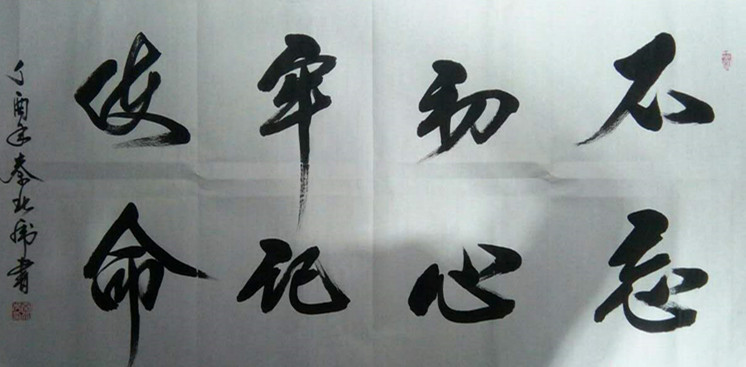 不忘
初心
牢记
使命
丁酉年秦北